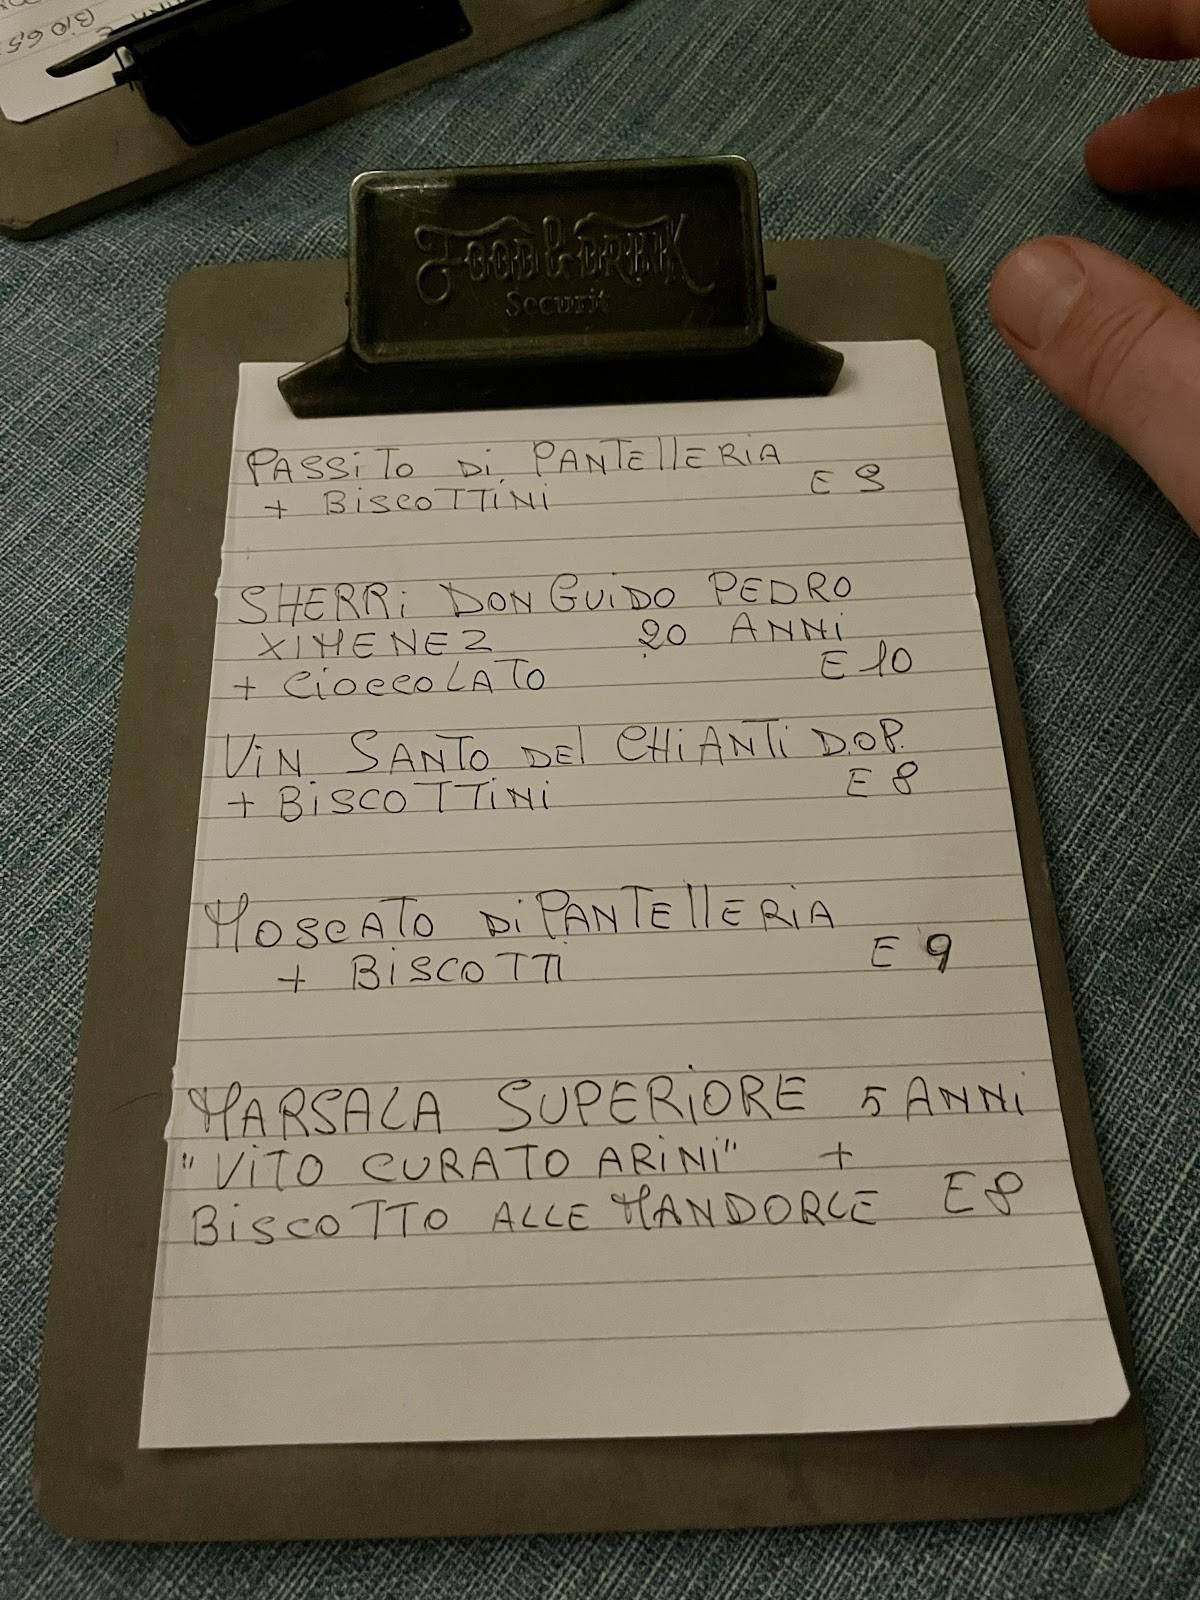 BIO 6,5
FOOD & DRINK
Securit
PASSITO DI PANTELLERIA
+ BISCOTTINI E 9
SHERRI DON GUIDO PEDRO
XIMENEZ 20 ANNI
+ CIOCCOLATO E 10
VIN SANTO DEL CHIANTI D.O.P.
+ BISCOTTINI E 8
MOSCATO DI PANTELLERIA
+ BISCOTTI E 9
MARSALA SUPERIORE 5 ANNI
"VITO CURATO ARINI" +
BISCOTTO ALLE MANDORLE E 8